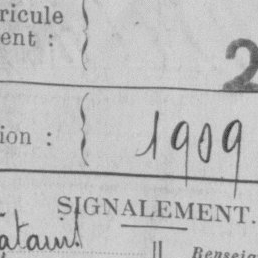 ricule
ent :
2
ion :
1909
SIGNALEMENT.
âtaint
Renseig